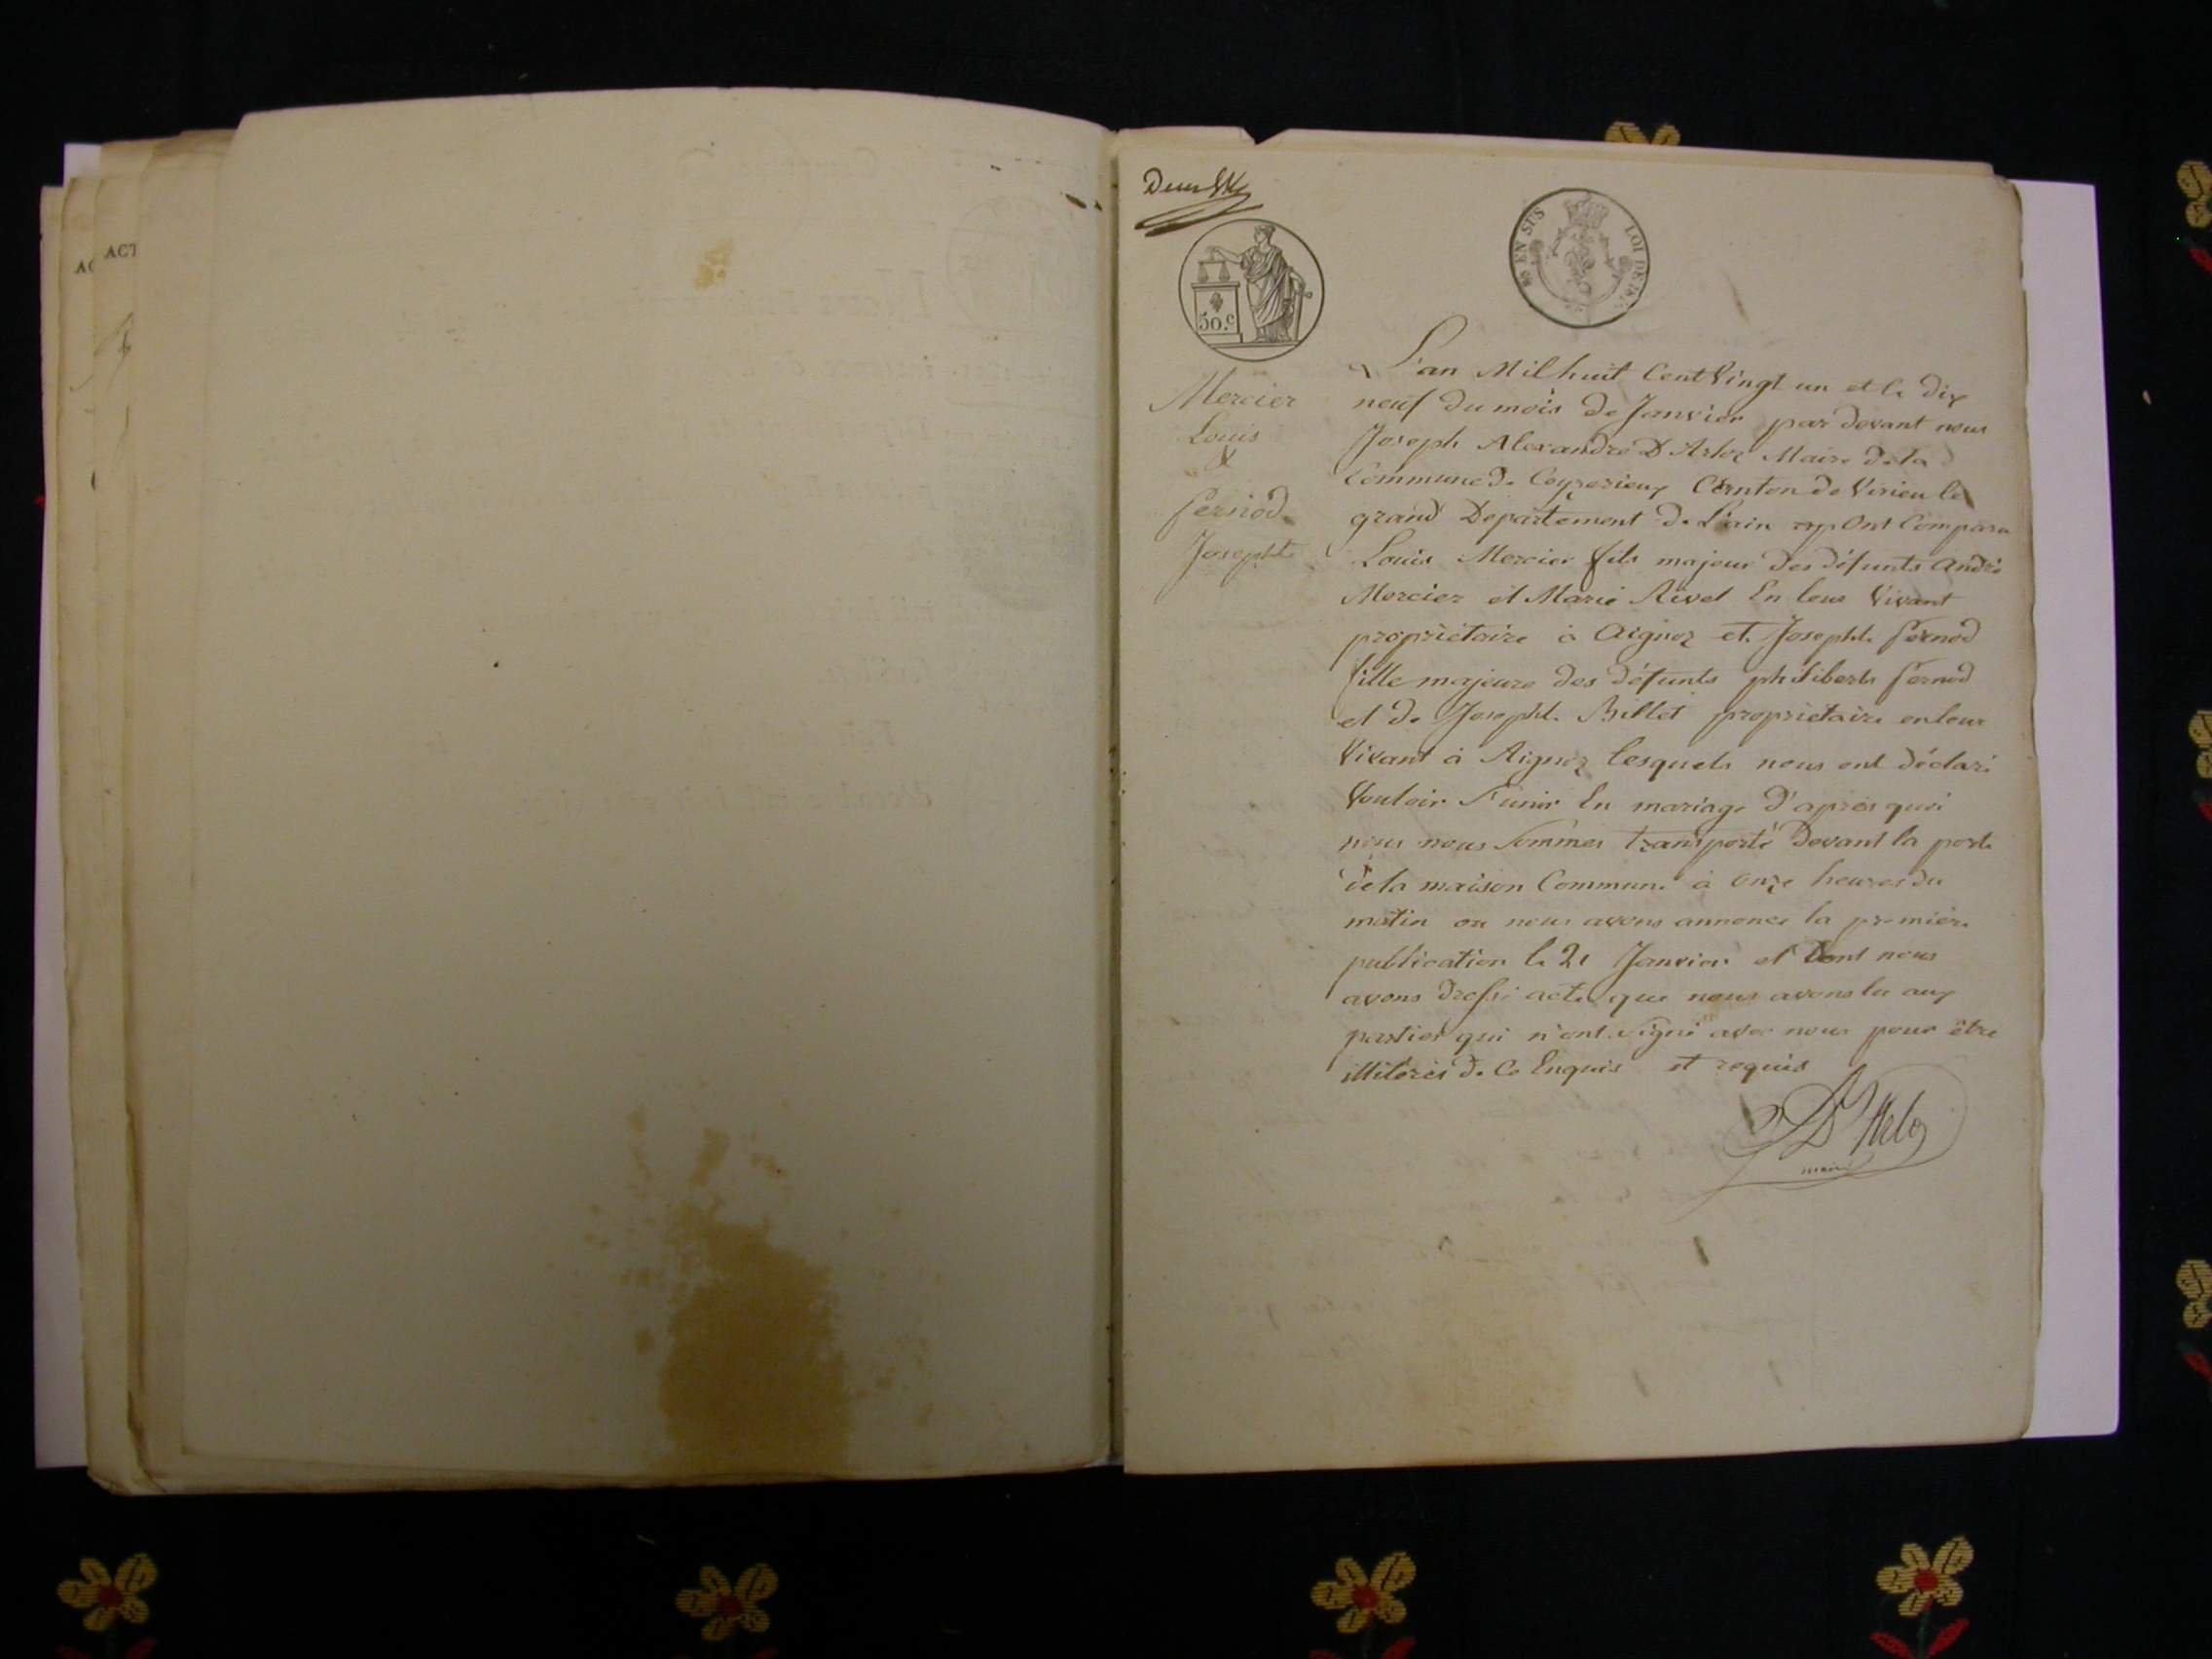 AC
ACT
50.c
EN SUS
LOI DE
Mercier
Louis
&
Fernod
Josephte
L'an Mil huit Cent Vingt un et le dix
neuf du mois de Janvier par devant nous
Joseph Alexandre D Arloz Maire de la
Commune de Ceyzerieux Canton de Virieu le
grand Département de L'ain Ont Comparu
Louis Mercier fils majeur des défunts André
Mercier et Marie Rivet En leur Vivant
propriétaire à Aignoz et Josephte Fernod
fille majeure des défunts philiberts Fernod
et de Josephte Billet propriétaire en leur
Vivant à Aignoz lesquels nous ont déclaré
Vouloir S'unir En mariage D'après quoi
nous nous Sommes transporté Devant la porte
de la maison Commune à onze heures du
matin ou nous avons annoncé la première
publication le 21 Janvier et Dont nous
avons dressé acte que nous avons lu aux
parties qui n'ont signé avec nous pour être
illitérés de Ce Enquis et requis
D Arloz
maire